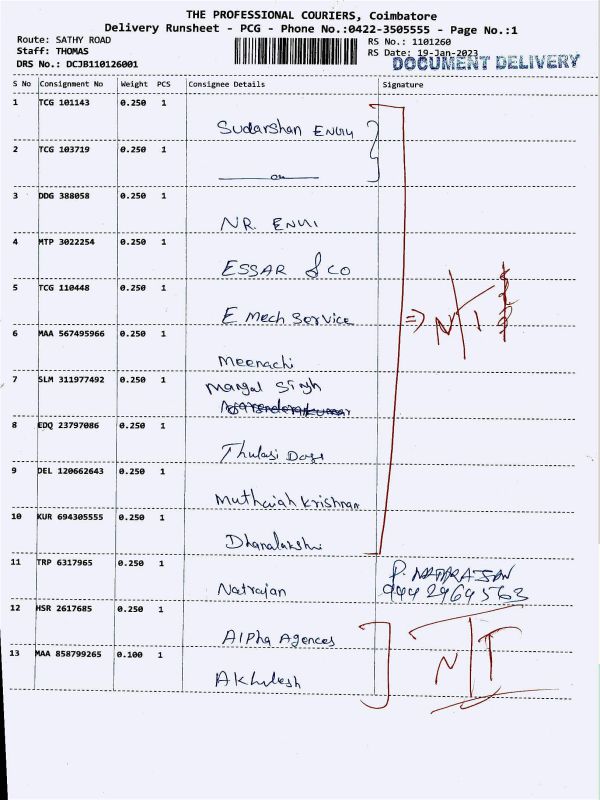 THE PROFESSIONAL COURIERS, Coimbatore
Delivery Runsheet - PCG - Phone No.:0422-3505555 - Page No.:1
Route: SATHY ROAD
RS No.: 1101260
Staff: THOMAS
RS Date: 19-Jan-2023
DRS No.: DCJB110126001
DOCUMENT DELIVERY
S No Consignment No Weight PCS Consignee Details Signature
1 TCG 101143 0.250 1
Sudarshan
2 TCG 103719 0.250 1
3 DDG 388058 0.250 1
NR.
4 MTP 3022254 0.250 1
ESSAR & CO
5 TCG 110448 0.250 1
E Mech Service
6 MAA 567495966 0.250 1
Meenachi
7 SLM 311977492 0.250 1
Mangal Singh
8 EDQ 23797086 0.250 1
Thulasi
9 DEL 120662643 0.250 1
Muthaiah Krishnan
10 KUR 694305555 0.250 1
Dhanalakshmi
11 TRP 6317965 0.250 1
Natrajan
P. NATARAJAN
9442969563
12 HSR 2617685 0.250 1
Alpha Agences
13 MAA 858799265 0.100 1
Akhilesh
N/T